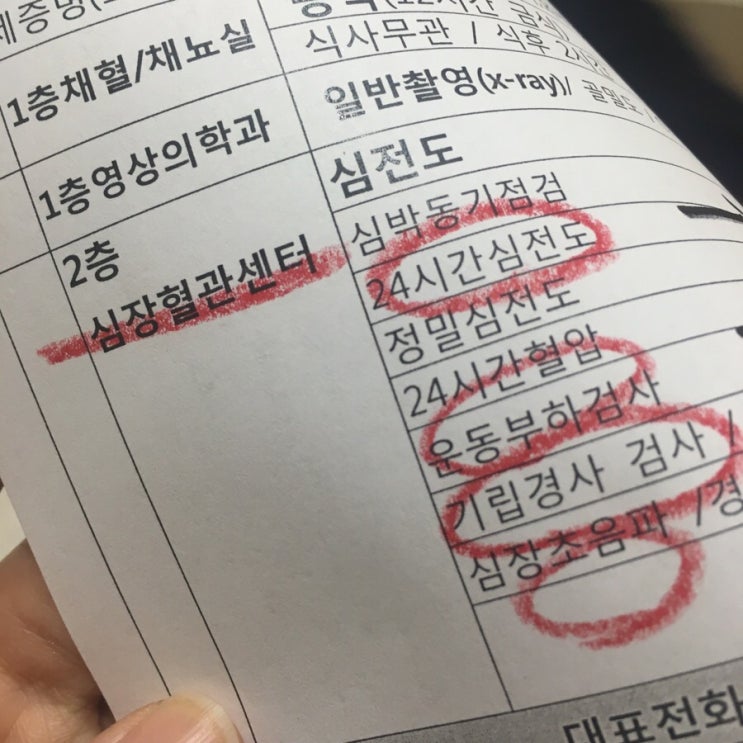 1층채혈/채뇨실
식사무관 / 식후 2시간
1층영상의학과
일반촬영(x-ray)/
심전도
2층
심장혈관센터
심박동기점검
24시간심전도
정밀심전도
24시간혈압
운동부하검사
기립경사 검사 /
심장초음파 /경
대표전화